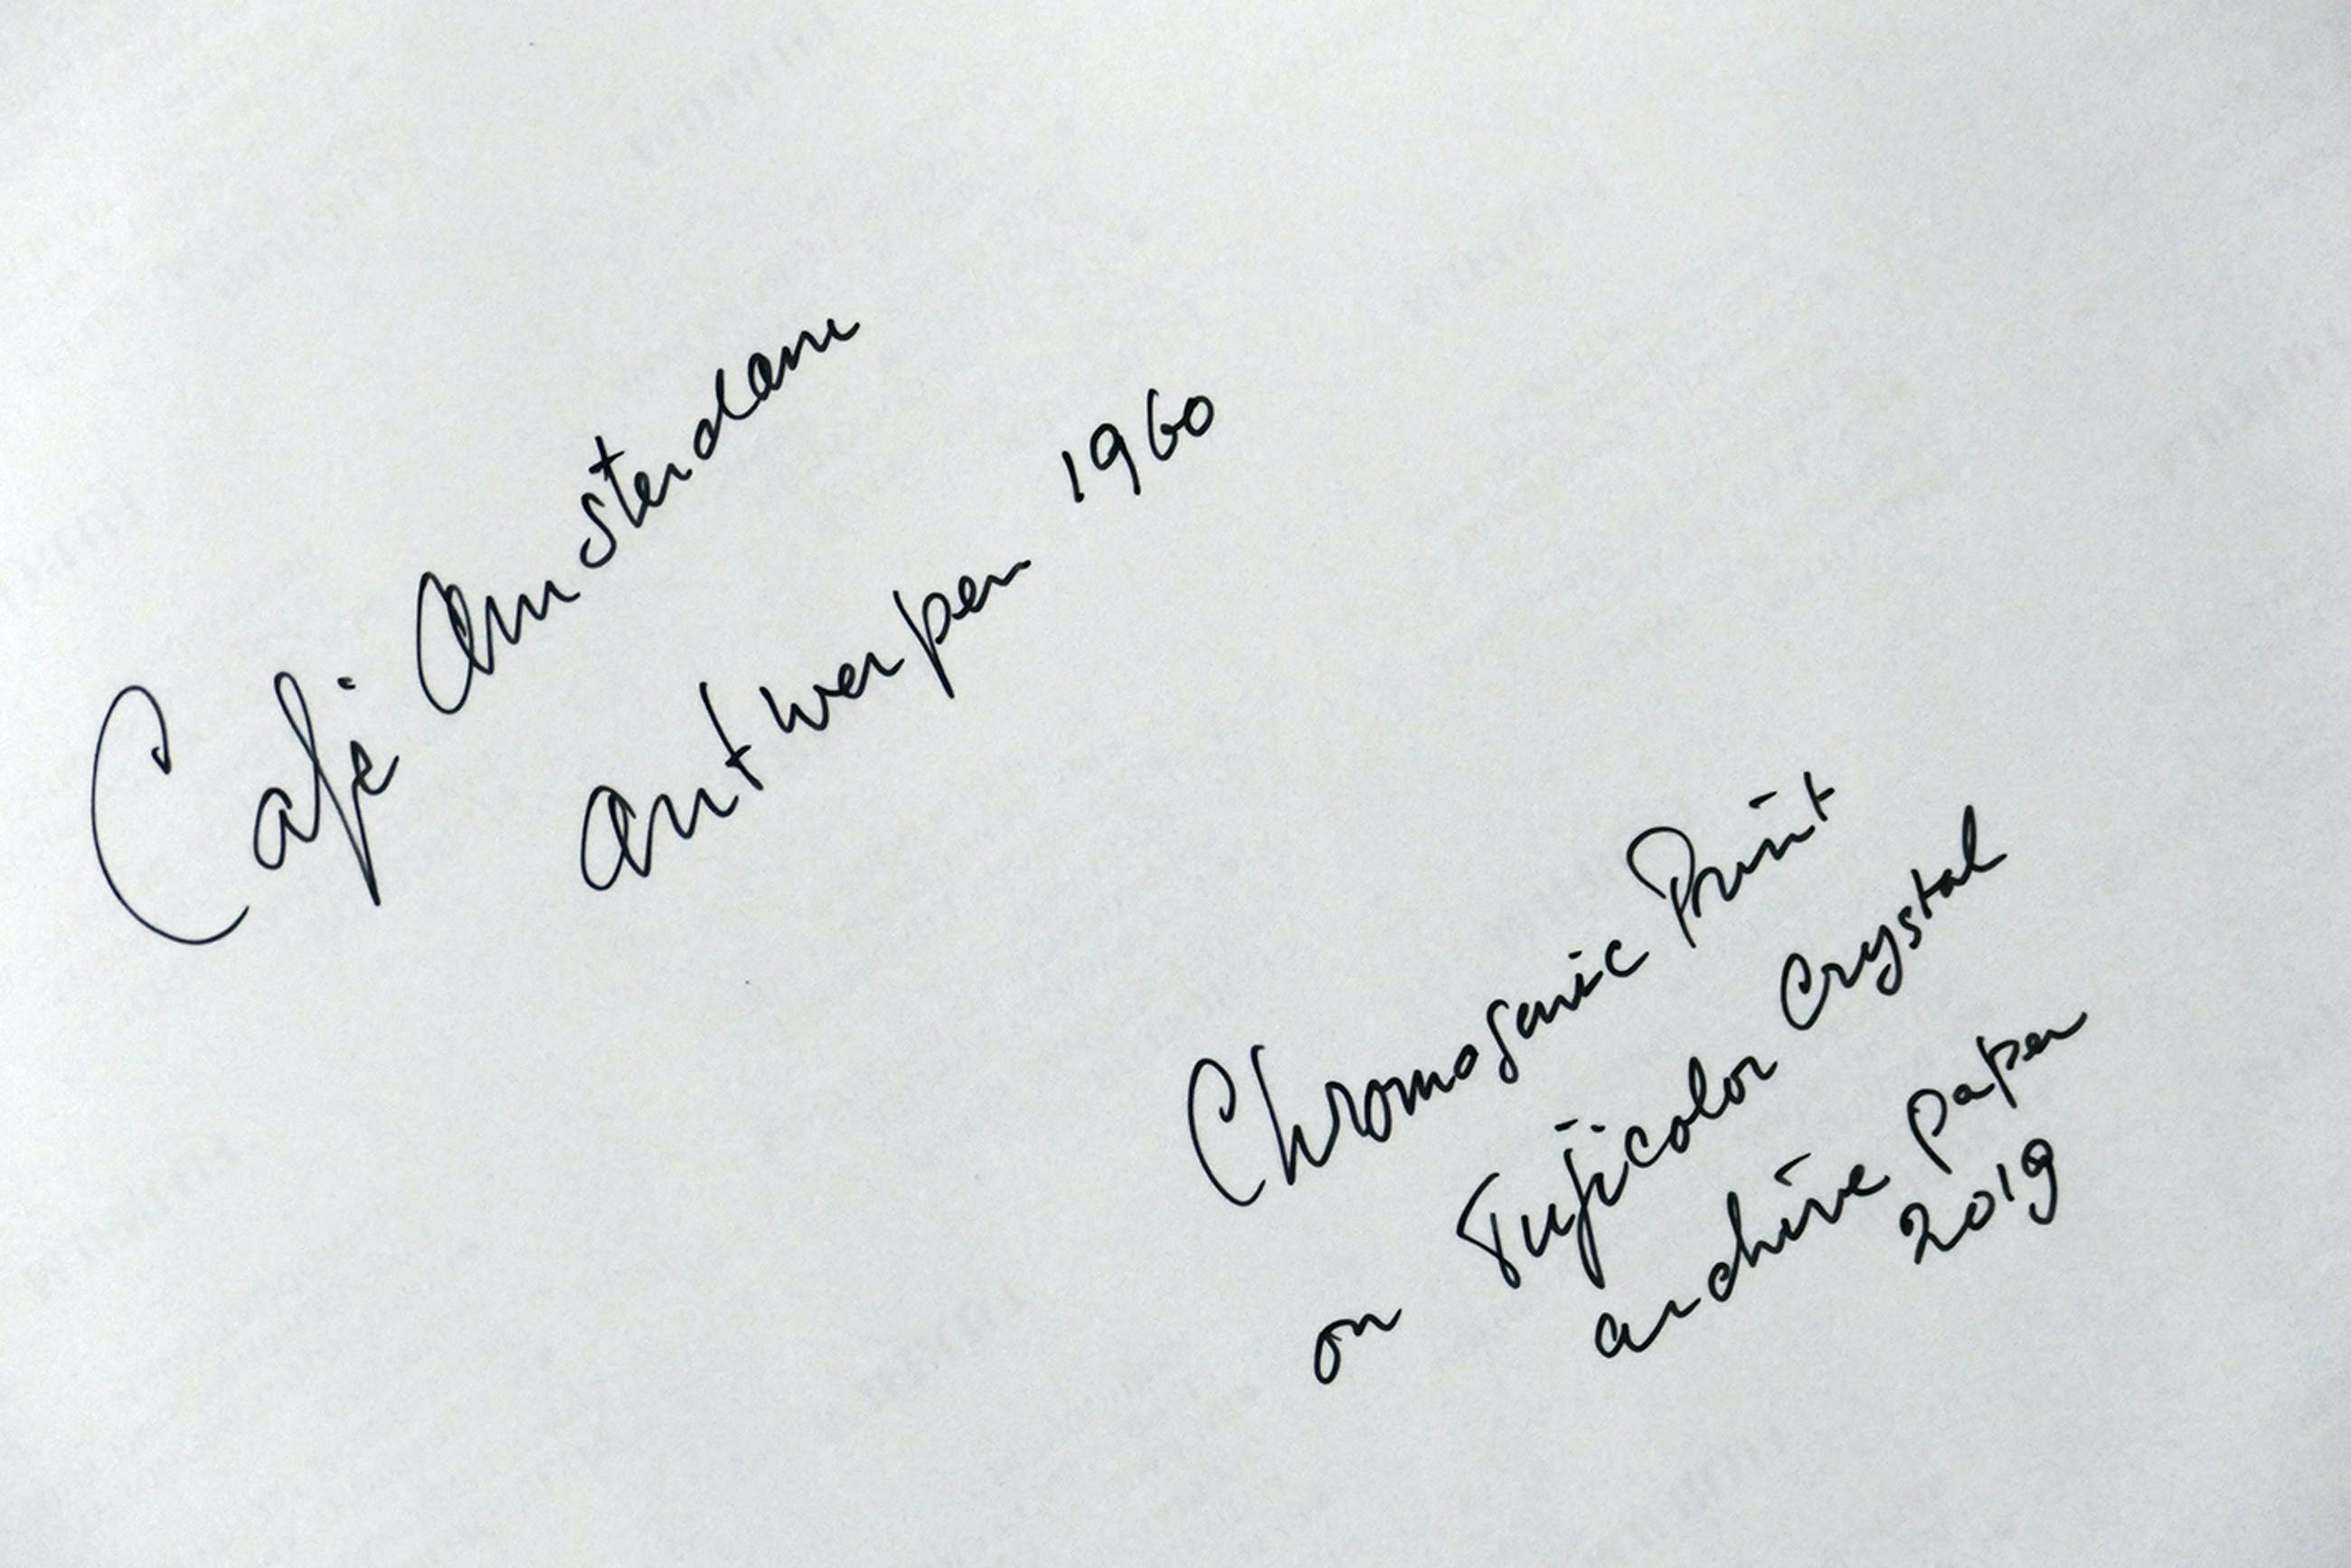 Café Amsterdam
Antwerpen 1960
Chromogenic Print
on Fujicolor Crystal
archive Paper
2019